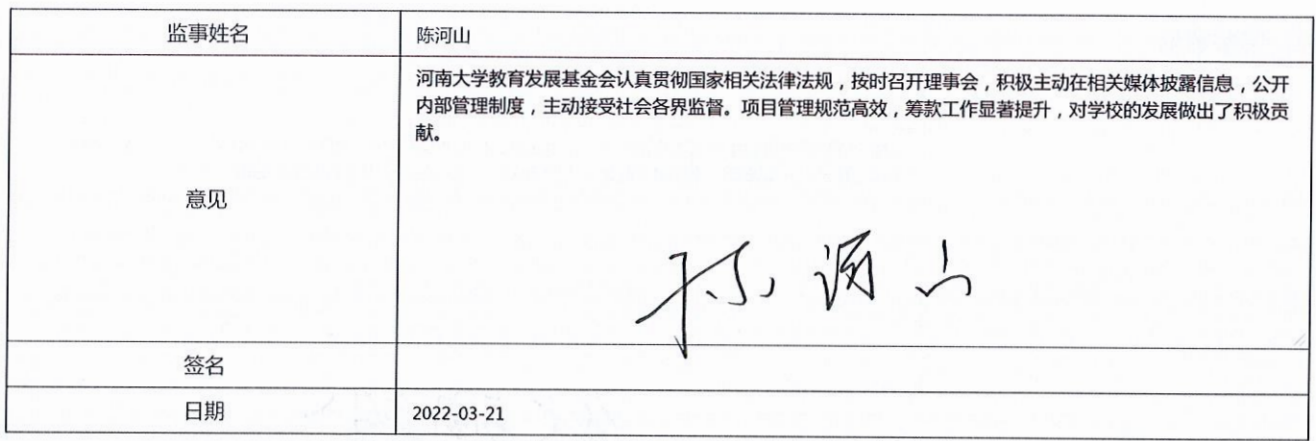 监事姓名
陈河山
意见
河南大学教育发展基金会认真贯彻国家相关法律法规，按时召开理事会，积极主动在相关媒体披露信息，公开
内部管理制度，主动接受社会各界监督。项目管理规范高效，筹款工作显著提升，对学校的发展做出了积极贡
献。
陈河山
签名
日期
2022-03-21